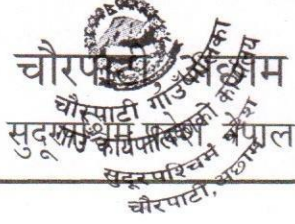 चौरपाटी अछाम
सुदूरपश्चिम प्रदेश नेपाल
चौरपाटी गाउँपालिका
गाउँ कार्यपालिकाको कार्यालय
सुदूरपश्चिम प्रदेश
चौरपाटी, अछाम